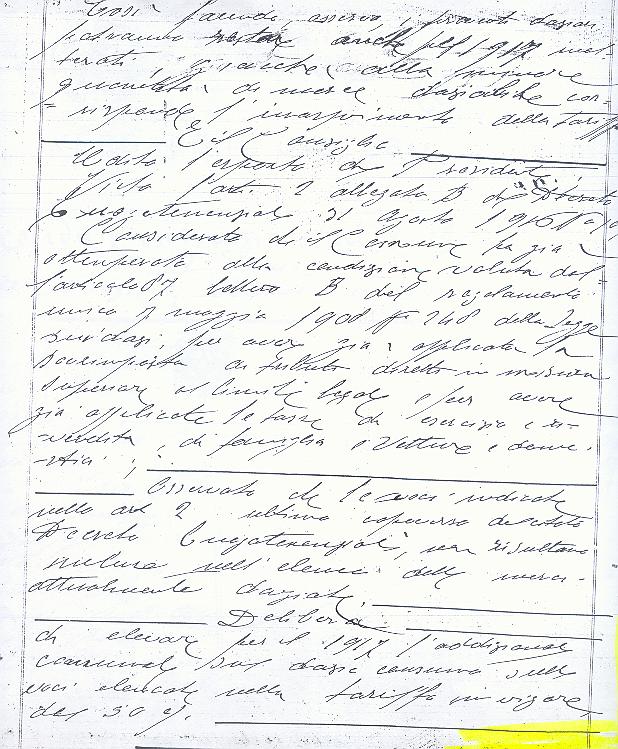 Così facendo, osserva, i proventi daziari
potranno restar anche pel 1917 inal-
terati, giacché alla minore
quantità di merce daziabile cor-
risponde l'inasprimento della tariffa
Il Consiglio
Udito l'esposto del Presidente
Visto l'art. 2 allegato B del Decreto
Luogotenenziale 31 Agosto 1916 N°
Considerato che il Comune ha già
ottemperato alla condizione voluta dal-
l'articolo 87 lettera B del regolamento
unico 7 maggio 1908 N° 248 della Legge
sui dazi, per avere già applicata la
sovrimposta ai tributi diretti in misura
superiore ai limiti legali e per avere
già applicate le tasse di esercizio e ri-
vendita, di famiglia e vetture e dome-
stici;
Osservato che le voci indicate
nello art 2 ultimo capoverso del citato
Decreto Luogotenenziale, non risultano
incluse nell'elenco delle merci
attualmente daziate,
Delibera
di elevare per il 1917 l'addizionale
comunale sul dazio consumo sulle
voci elencate nella tariffa in vigore
del 50 %.